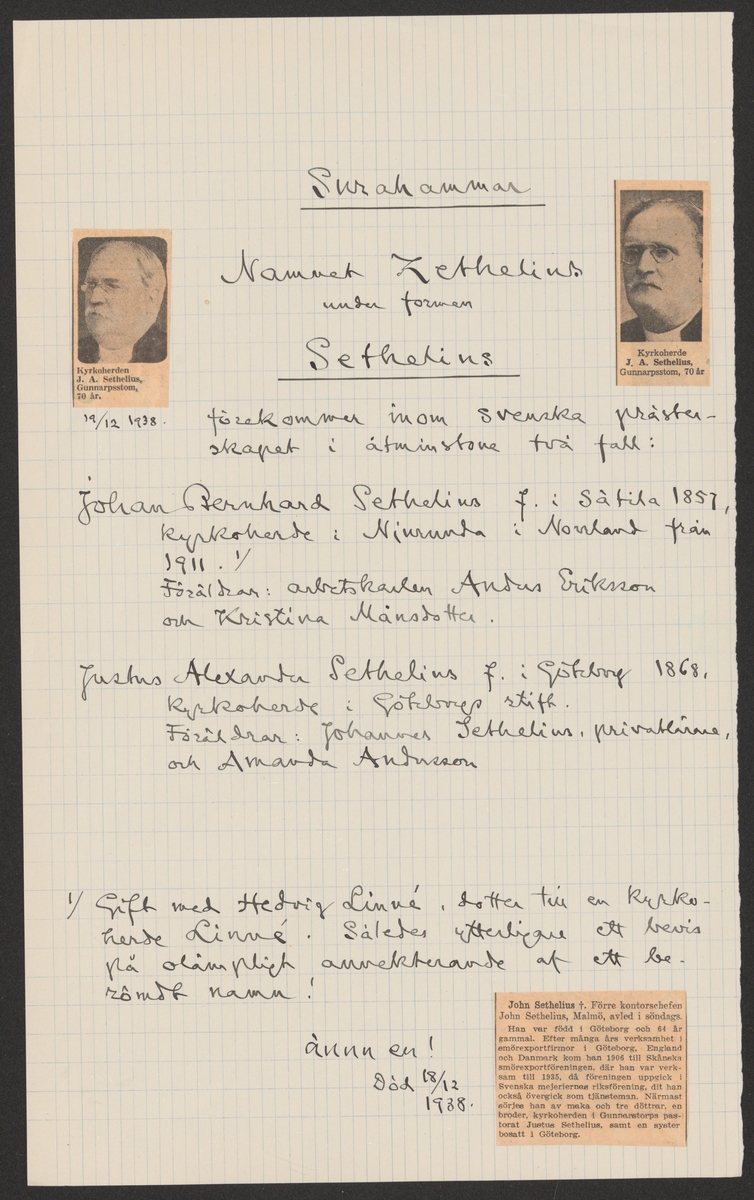 Surahammar
Namnet Zethelius
under formen
Sethelius
Kyrkoherden
J. A. Sethelius,
Gunnarpsstom,
70 år.
19/12 1938.
Kyrkoherde
J. A. Sethelius,
Gunnarpsstom, 70 år
förekommer inom svenska präster-
skapet i åtminstone två fall:
Johan Bernhard Sethelius f. i Sätila 1857,
kyrkoherde i Njurunda i Norrland från
1911. 1/
Föräldrar: arbetskarlen Anders Eriksson
och Kristina Månsdotter.
Justus Alexander Sethelius f. i Göteborg 1868,
kyrkoherde i Göteborgs stift.
Föräldrar: Johannes Sethelius, privatlärare,
och Amanda Andersson
1/ Gift med Hedvig Linné, dotter till en kyrko-
herde Linné. Således ytterligare ett bevis
på olämpligt annekterande af ett be-
römdt namn!
ännu en!
Död 18/12
1938.
John Sethelius †. Förre kontorschefen
John Sethelius, Malmö, avled i söndags.
Han var född i Göteborg och 64 år
gammal. Efter många års verksamhet i
smörexportfirmor i Göteborg, England
och Danmark kom han 1906 till Skånska
smörexportföreningen, där han var verk-
sam till 1935, då föreningen uppgick i
Svenska mejeriernas riksförening, dit han
också övergick som tjänsteman. Närmast
sörjes han av maka och tre döttrar, en
broder, kyrkoherden i Gunnarstorps pas-
torat Justus Sethelius, samt en syster
bosatt i Göteborg.